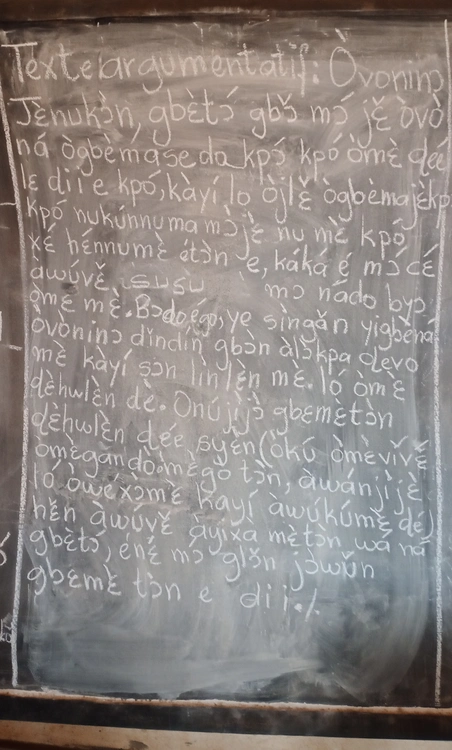 Texte argumentatif: Òvoninɔ
Jɛ̀nukɔ̀n, gbɛ̀tɔ́ gbɔ̌ mɔ́ jɛ̌ òvò
ná ògbèmásedo kpɔ́ kpó òmɛ̀ dée
lɛ dii e kpó, kàyí lo òjlɛ̌ ògbèmajɛ̀kp
kpó nukúnnuma mɔ̀ jɛ̀ nu mɛ̀ kpó
xɛ́ hɛ́nnumɛ̀ étɔ̀n e, káká é mɔ́ cɛ́
àwúvɛ̌ susu mɔ nádo byɔ
òmɛ̀ mɛ̀. Bɔdoégɔ, ye sìngǎn yìgbèna
òvoninɔ dìndín gbɔn àlɔ̀kpa devo
mɛ̀ kàyí sɔn lìnlɛ̀n mɛ̀. ló òmɛ̀
dɛ̀hwlɛ̀n dè. Onú jɔ̀jɔ̀ gbɛmɛ̀tɔ̀n
dɛ̀hwlɛ̀n dée syɛ́n (òkú òmɛvívɛ̌
òmɛ̀gándò.mɛ̀gò tɔ̀n, àwánjijɛ̀
ló òwéxɔ̀mɛ̀ kàyí àwúkúmɛ̀ dé)
hɛ̌n àwúvɛ̌ àyìxà mɛ̀tɔ̀n wá ná
gbɛ̀tɔ́, énɛ́ mɔ glɔ̌n jɔ̀wǔn
gbɛmɛ̀ tɔ̀n e dii./.